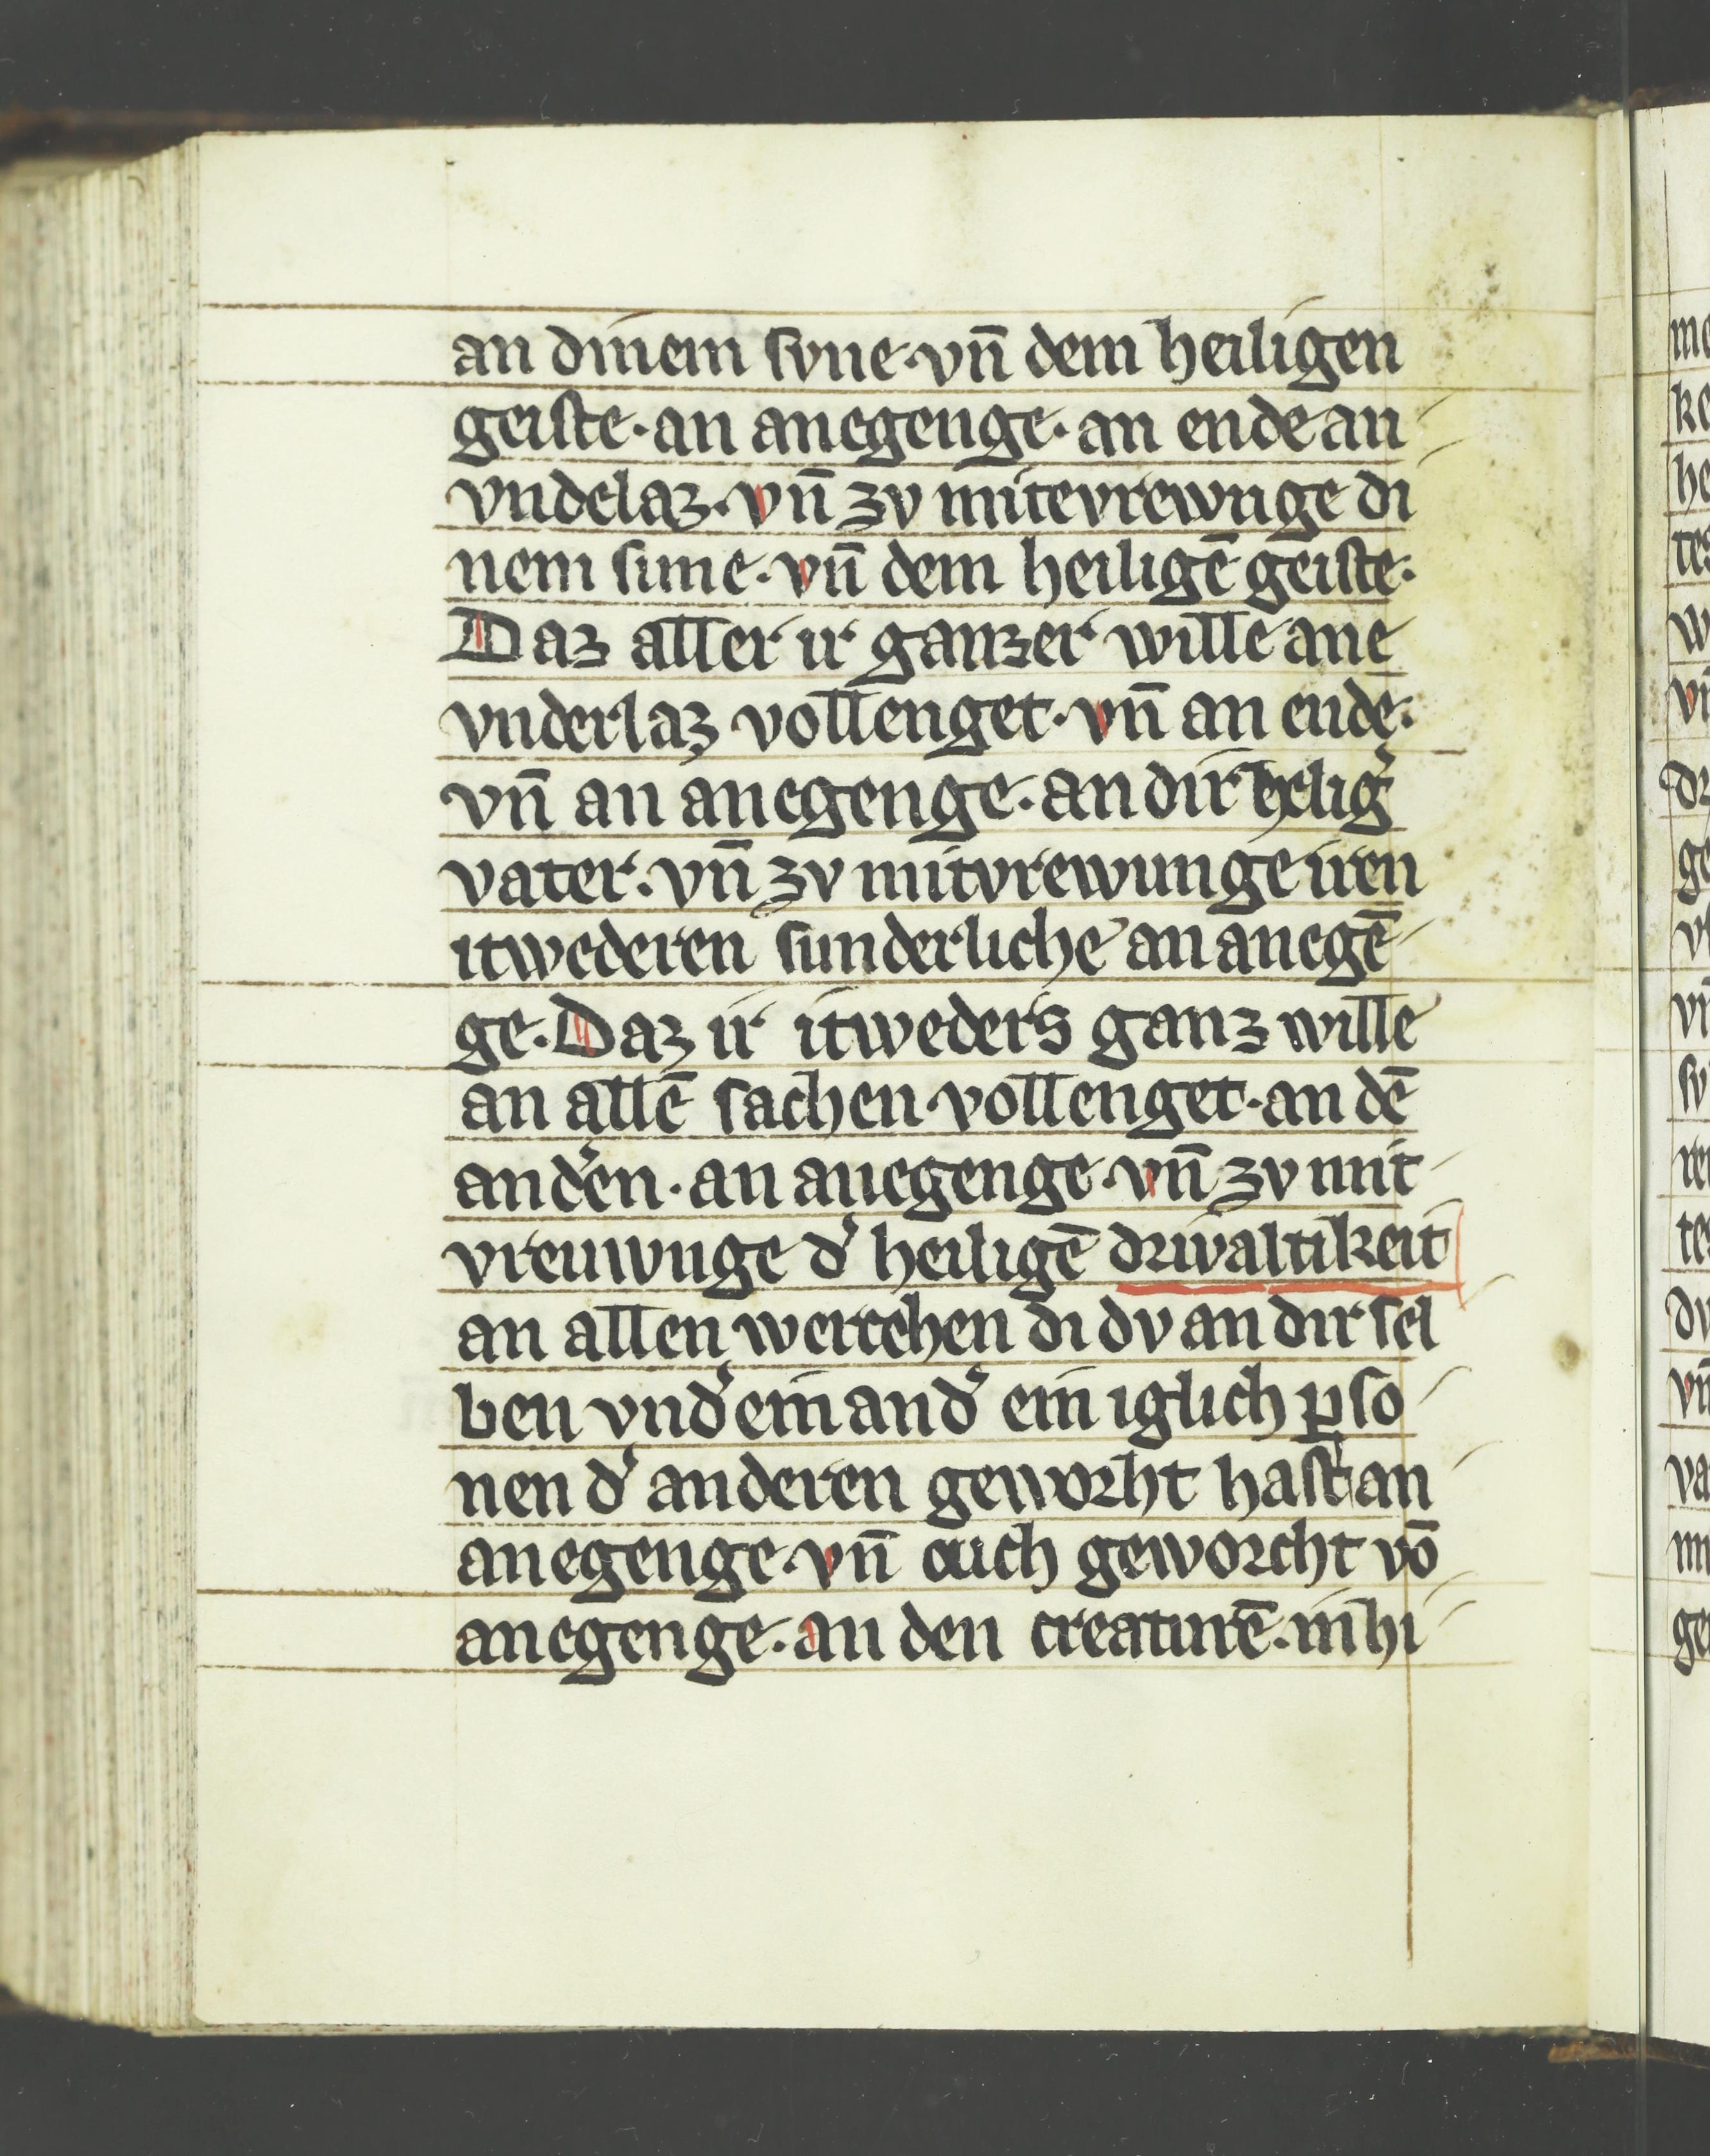 an dinem svne·vn̄ dem heiligen
geiste·an anegenge·an ende an
vndelaz·vn̄ zv mitevrewnge di
nem sune·vn̄ dem heiligē geiste·
Daz aller ir ganzer wille ane
vnderlaz vollenget·vn̄ an ende·
vn̄ an anegenge·an dir helig͛
vater·vn̄ zv mitvrewunge iren
itwederen sunderliche an anegē
ge·Daz ir itweders ganz wille
an allē sachen·vollenget·an dē
and͛en·an anegenge·vn̄ zv mit
vreuwnge d͛ heiligē drivaltikeit
an allen wercchen di dv an dir sel
ben vnd͛ einand͛ ein iglich ꝑso
nen d͛ anderen geworht hast an
anegenge·vn̄ ouch geworcht vō
anegenge·an den creaturē·in hi